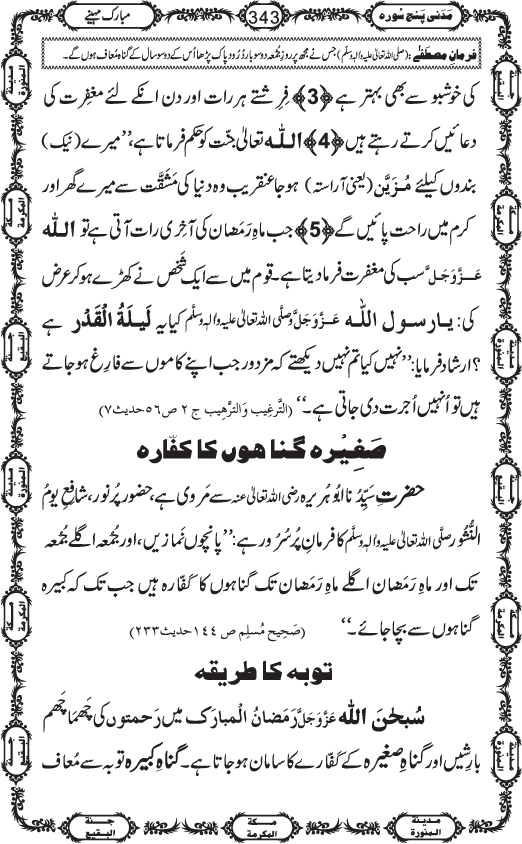 مَدَنی پنج سُورہ
343
مبارک مہینے
فرمانِ مصطَفٰے: (صلی اللہ تعالیٰ علیہ واٰلہٖ وسلّم) جس نے مجھ پر روزِ جُمُعہ دو سو بار دُرُودِ پاک پڑھا اُس کے دو سو سال کے گناہ مُعاف ہوں گے۔
کی خوشبو سے بھی بہتر ہے ﴿3﴾ فِرِشتے ہر رات اور دن ان کے لئے مغفِرت کی
دعائیں کرتے رہتے ہیں ﴿4﴾ اللہ تعالیٰ جنّت کو حکم فرماتا ہے، ’’میرے (نیک)
بندوں کیلئے مُزَیَّن (یعنی آراستہ) ہوجا عنقریب وہ دنیا کی مَشَقَّت سے میرے گھر اور
کرم میں راحت پائیں گے ﴿5﴾ جب ماہِ رَمَضان کی آخِری رات آتی ہے تو اللہ
عَزَّوَجَلَّ سب کی مغفِرت فرما دیتا ہے۔ قوم میں سے ایک شَخص نے کھڑے ہو کر عرض
کی: یارسول اللہ عَزَّوَجَلَّ وصلَّی اللہ تعالیٰ علیہ واٰلہٖ وسلَّم کیا یہ لَیلَۃُ الْقَدْر ہے
؟ ارشاد فرمایا: ’’نہیں کیا تم نہیں دیکھتے کہ مزدور جب اپنے کاموں سے فارِغ ہو جاتے
ہیں تو اُنہیں اُجرت دی جاتی ہے۔‘‘ (الترغیب والترہیب ج ۲ ص ۵۶ حدیث ۷)
صَغِیرہ گناہوں کا کفّارہ
حضرتِ سیِّدُنا ابو ہریرہ رضی اللہ تعالیٰ عنہ سے مَروی ہے، حضورِ پُرنور، شافِعِ یومُ
النُّشور صلَّی اللہ تعالیٰ علیہ واٰلہٖ وسلَّم کا فرمانِ پُرسُرور ہے: ’’پانچوں نَمازیں، اور جُمُعہ اگلے جُمُعہ
تک اور ماہِ رَمَضان اگلے ماہِ رَمَضان تک گناہوں کا کَفّارہ ہیں جب تک کہ کبیرہ
گناہوں سے بچا جائے۔‘‘ (صَحِیح مُسلِم ص ۱۴۴ حدیث ۲۳۳)
توبہ کا طریقہ
سُبحٰنَ اللہ عَزَّوَجَلَّ رَمَضانُ المبارَک میں رَحمتوں کی چَھما چَھم
بارِشیں اور گناہِ صغیرہ کے کَفّارے کا سامان ہو جاتا ہے۔ گناہِ کبیرہ توبہ سے مُعاف
مدینۃ المنورۃ
مکۃ المکرمۃ
جنۃ البقیع
مدینۃ المنورۃ
مکۃ المکرمۃ
جنۃ البقیع
جنۃ البقیع
مکۃ المکرمۃ
مدینۃ المنورۃ
جنۃ البقیع
مکۃ المکرمۃ
مدینۃ المنورۃ
مدینۃ المنورۃ
مکۃ المکرمۃ
جنۃ البقیع